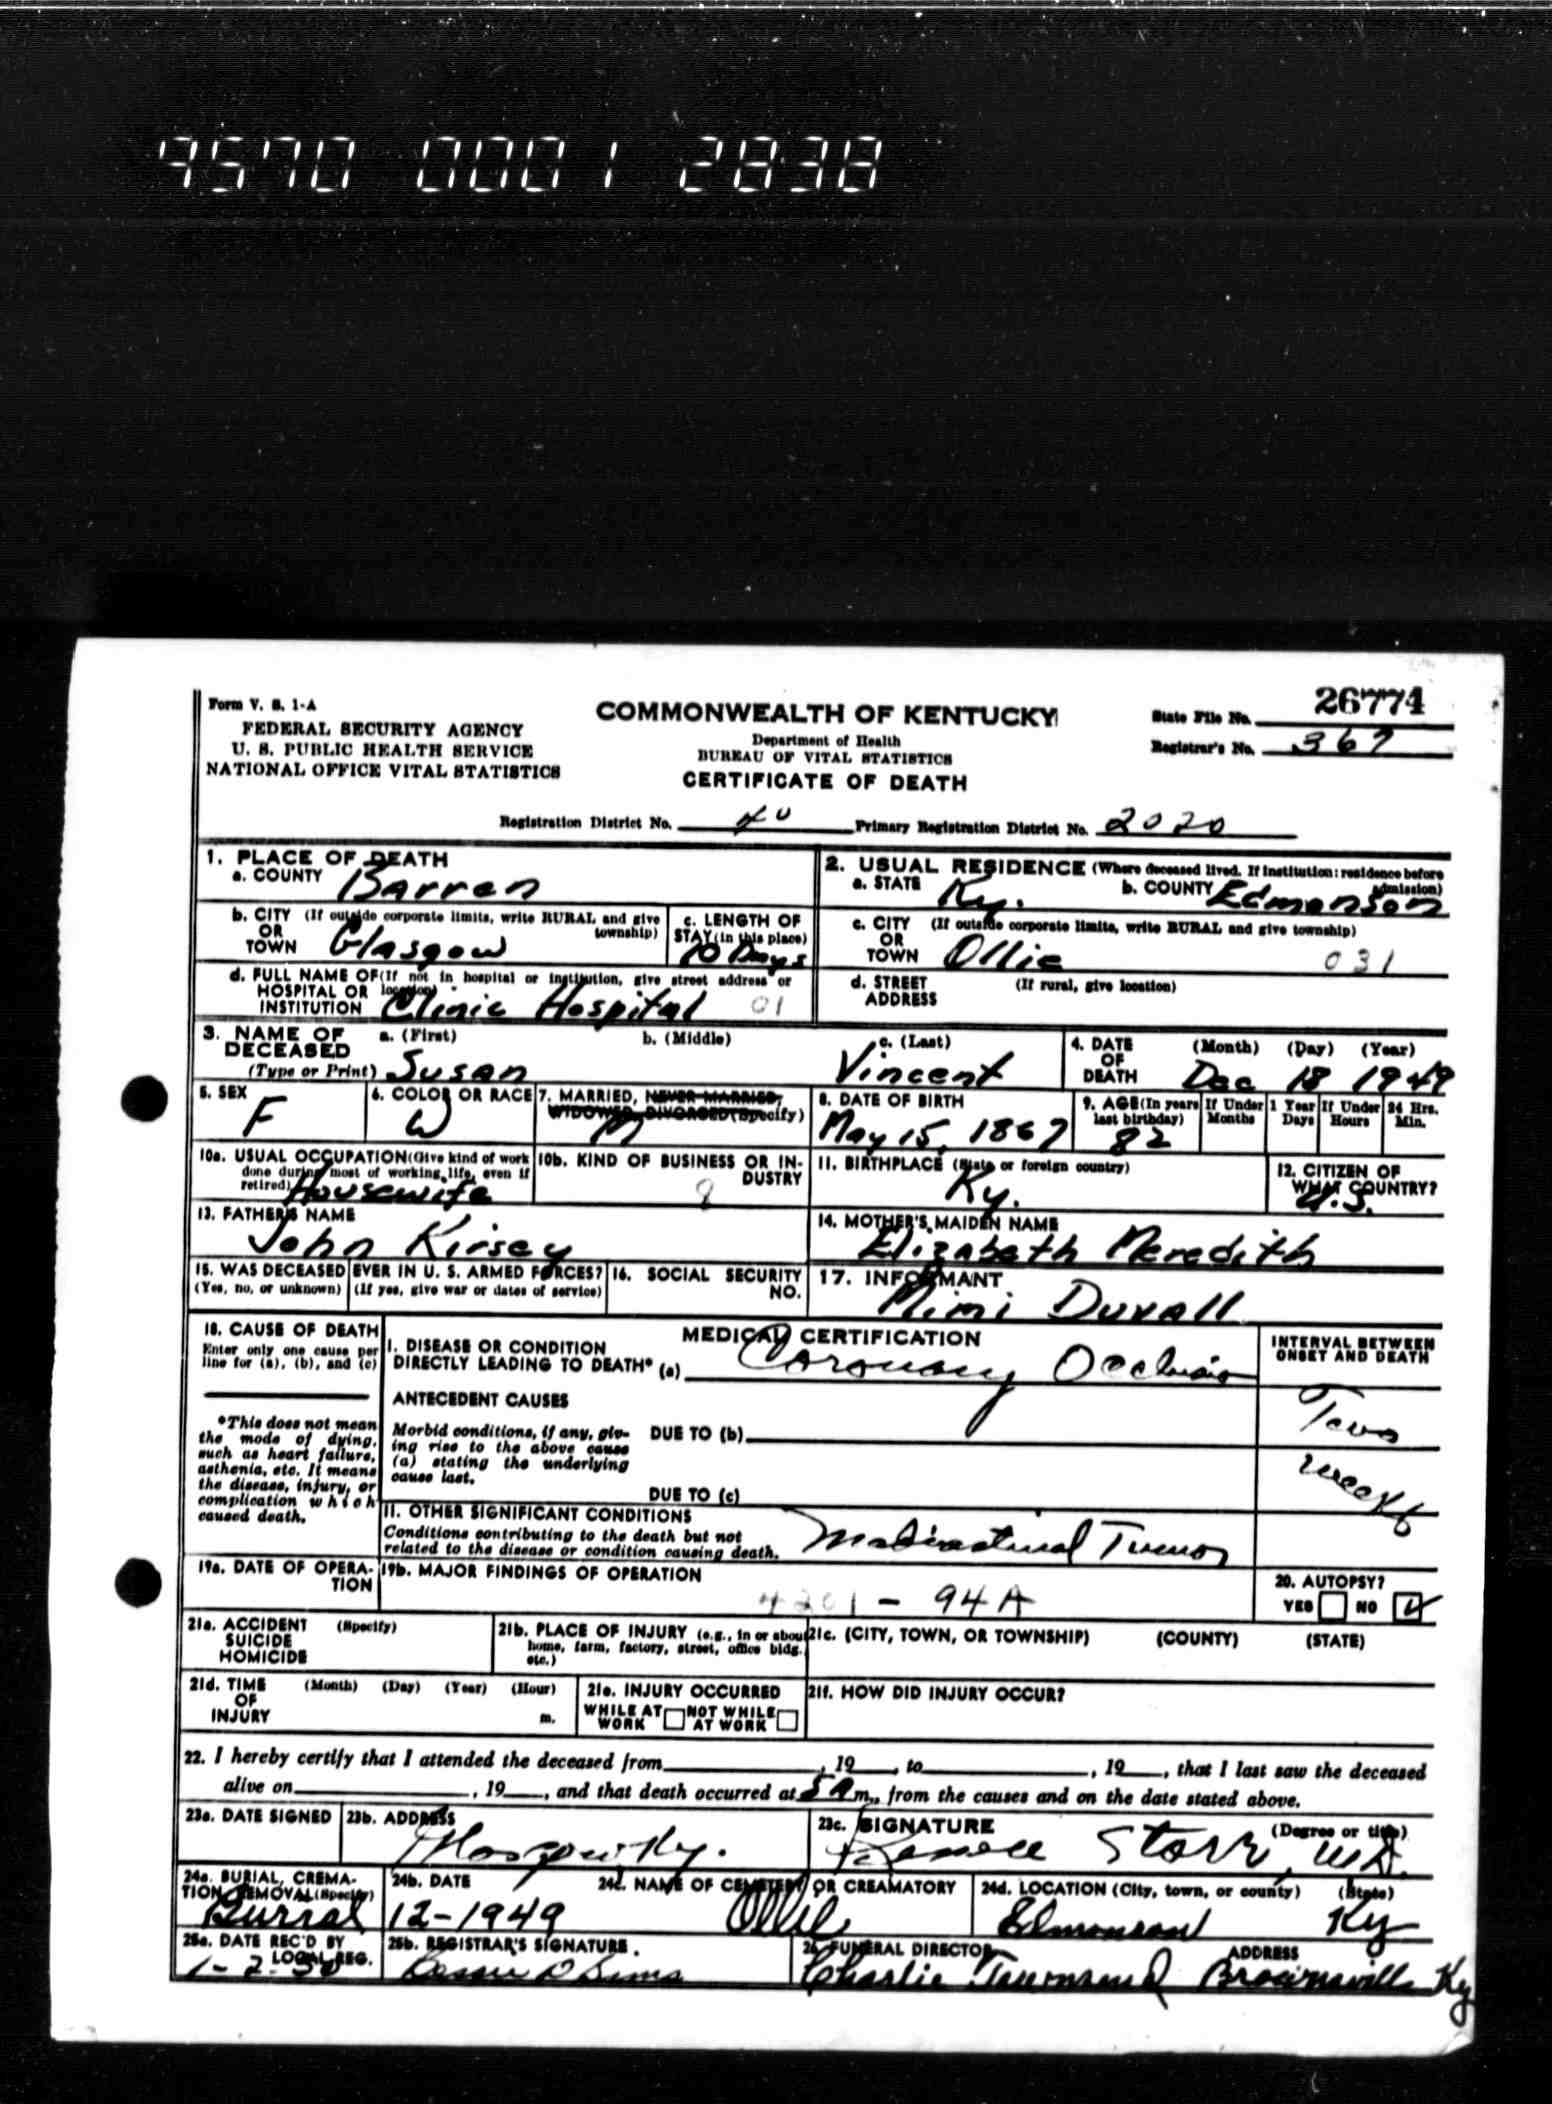 9570 0001 2838
Form V. S. 1-A
FEDERAL SECURITY AGENCY
U. S. PUBLIC HEALTH SERVICE
NATIONAL OFFICE VITAL STATISTICS
COMMONWEALTH OF KENTUCKY
Department of Health
BUREAU OF VITAL STATISTICS
CERTIFICATE OF DEATH
State File No. 26774
Registrar's No. 367
Registration District No. 40 Primary Registration District No. 2020
1. PLACE OF DEATH
a. COUNTY Barren
2. USUAL RESIDENCE (Where deceased lived. If institution: residence before admission)
a. STATE Ky. b. COUNTY Edmonson
b. CITY (If outside corporate limits, write RURAL and give township)
OR TOWN Glasgow
c. LENGTH OF STAY (in this place) 10 Days
c. CITY (If outside corporate limits, write RURAL and give township)
OR TOWN Ollie 031
d. FULL NAME OF (If not in hospital or institution, give street address or location)
HOSPITAL OR INSTITUTION Clinic Hospital 01
d. STREET ADDRESS (If rural, give location)
3. NAME OF DECEASED (Type or Print)
a. (First) Susan b. (Middle) c. (Last) Vincent
4. DATE OF DEATH (Month) (Day) (Year) Dec 18 1949
5. SEX F
6. COLOR OR RACE W
7. MARRIED, NEVER MARRIED, WIDOWED, DIVORCED (Specify) M
8. DATE OF BIRTH May 15, 1867
9. AGE (In years last birthday) 82
If Under 1 Year Months Days
If Under 24 Hrs. Hours Min.
10a. USUAL OCCUPATION (Give kind of work done during most of working life, even if retired) Housewife
10b. KIND OF BUSINESS OR INDUSTRY 9
11. BIRTHPLACE (State or foreign country) Ky.
12. CITIZEN OF WHAT COUNTRY? U.S.
13. FATHER'S NAME John Kirsey
14. MOTHER'S MAIDEN NAME Elizabeth Meredith
15. WAS DECEASED EVER IN U. S. ARMED FORCES?
(Yes, no, or unknown) (If yes, give war or dates of service)
16. SOCIAL SECURITY NO.
17. INFORMANT Mimi Duvall
18. CAUSE OF DEATH
Enter only one cause per line for (a), (b), and (c)
*This does not mean the mode of dying, such as heart failure, asthenia, etc. It means the disease, injury, or complication which caused death.
MEDICAL CERTIFICATION
INTERVAL BETWEEN ONSET AND DEATH
I. DISEASE OR CONDITION DIRECTLY LEADING TO DEATH* (a) Coronary Occlusion
Two weeks
ANTECEDENT CAUSES
Morbid conditions, if any, giving rise to the above cause (a) stating the underlying cause last.
DUE TO (b)
DUE TO (c)
II. OTHER SIGNIFICANT CONDITIONS
Conditions contributing to the death but not related to the disease or condition causing death. Mediastinal Tumor
19a. DATE OF OPERATION
19b. MAJOR FINDINGS OF OPERATION
4201 - 94A
20. AUTOPSY?
YES NO
21a. ACCIDENT SUICIDE HOMICIDE (Specify)
21b. PLACE OF INJURY (e.g., in or about home, farm, factory, street, office bldg. etc.)
21c. (CITY, TOWN, OR TOWNSHIP) (COUNTY) (STATE)
21d. TIME OF INJURY (Month) (Day) (Year) (Hour) m.
21e. INJURY OCCURRED
WHILE AT WORK NOT WHILE AT WORK
21f. HOW DID INJURY OCCUR?
22. I hereby certify that I attended the deceased from , 19 , to , 19 , that I last saw the deceased
alive on , 19 , and that death occurred at 5 A m., from the causes and on the date stated above.
23a. DATE SIGNED
23b. ADDRESS Glasgow, Ky.
23c. SIGNATURE (Degree or title) Starr, M.D.
24a. BURIAL, CREMATION, REMOVAL (Specify) Burial
24b. DATE 12-1949
24c. NAME OF CEMETERY OR CREAMATORY Ollie
24d. LOCATION (City, town, or county) (State) Edmonson Ky
25a. DATE REC'D BY LOCAL REG. 1-2-50
25b. REGISTRAR'S SIGNATURE Bessie D Sims
26. FUNERAL DIRECTOR Charlie Townsend
ADDRESS Brownsville Ky